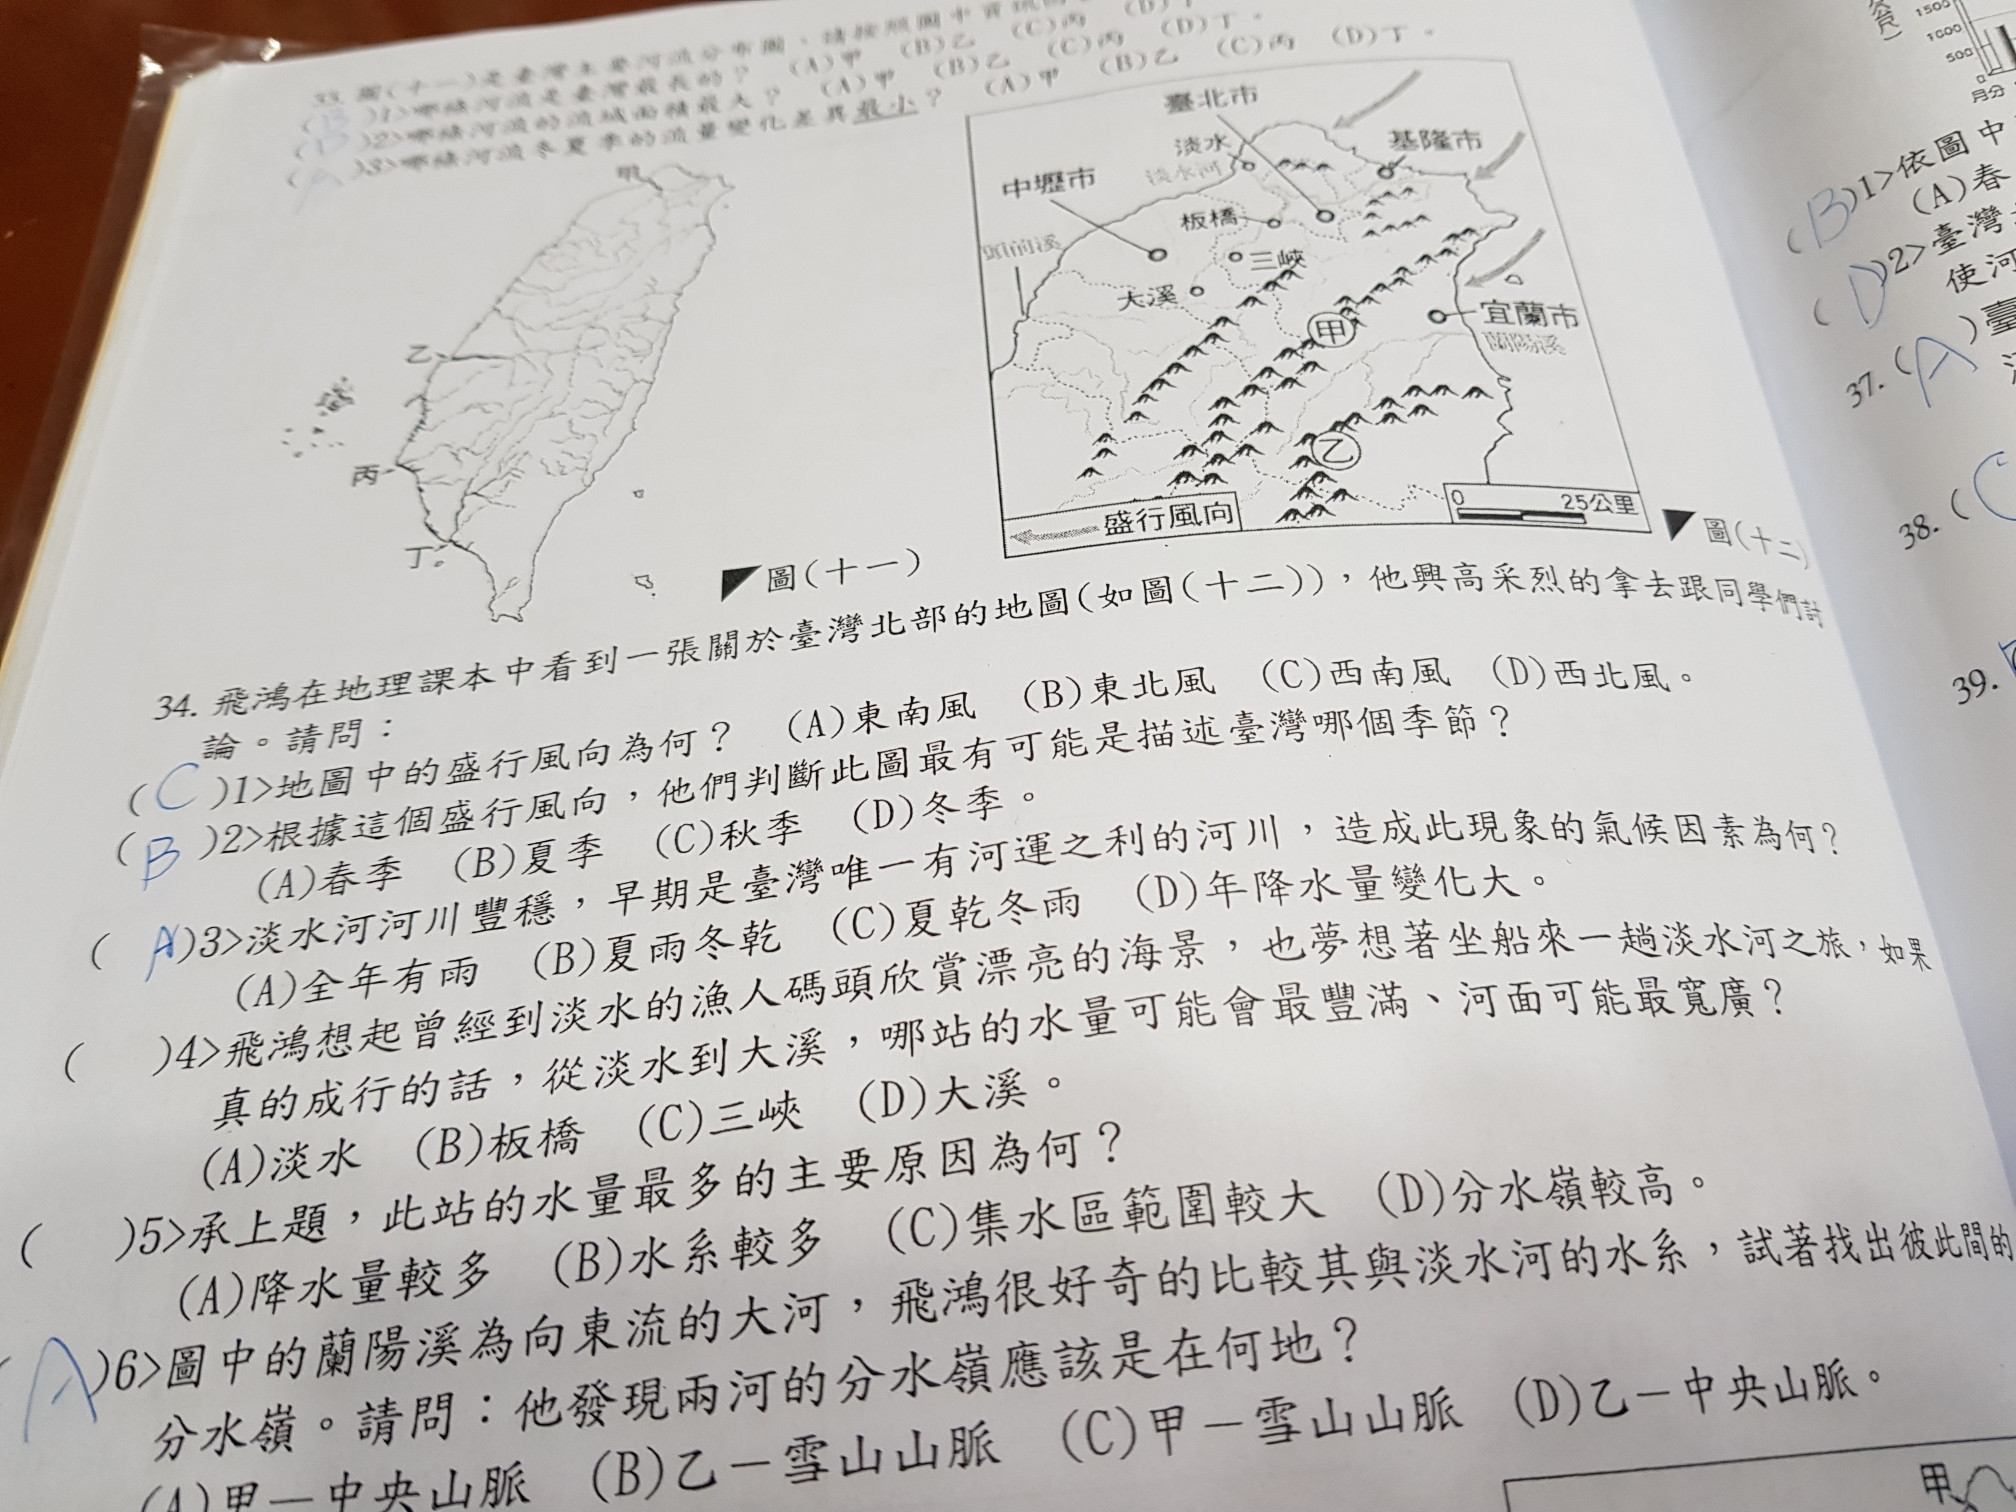 33. 圖(十一)是臺灣主要河流分布圖，請按照圖中
(B)1>哪條河流是臺灣最長的？ (A)甲 (B)乙 (C)丙 (D)丁
(D)2>哪條河流的流域面積最大？ (A)甲 (B)乙 (C)丙 (D)丁。
(A)3>哪條河流冬夏季的流量變化差異最小？ (A)甲 (B)乙 (C)丙 (D)丁。
甲
乙
丙
丁。
圖(十一)
臺北市
淡水
淡水河
基隆市
中壢市
板橋
頭前溪
三峽
大溪
甲
宜蘭市
蘭陽溪
乙
盛行風向
0 25公里
圖(十二)
34. 飛鴻在地理課本中看到一張關於臺灣北部的地圖(如圖(十二))，他興高采烈的拿去跟同學們討
論。請問：
(C)1>地圖中的盛行風向為何？ (A)東南風 (B)東北風 (C)西南風 (D)西北風。
(B)2>根據這個盛行風向，他們判斷此圖最有可能是描述臺灣哪個季節？
(A)春季 (B)夏季 (C)秋季 (D)冬季。
(A)3>淡水河河川豐穩，早期是臺灣唯一有河運之利的河川，造成此現象的氣候因素為何？
(A)全年有雨 (B)夏雨冬乾 (C)夏乾冬雨 (D)年降水量變化大。
( )4>飛鴻想起曾經到淡水的漁人碼頭欣賞漂亮的海景，也夢想著坐船來一趟淡水河之旅，如果
真的成行的話，從淡水到大溪，哪站的水量可能會最豐滿、河面可能最寬廣？
(A)淡水 (B)板橋 (C)三峽 (D)大溪。
( )5>承上題，此站的水量最多的主要原因為何？
(A)降水量較多 (B)水系較多 (C)集水區範圍較大 (D)分水嶺較高。
(A)6>圖中的蘭陽溪為向東流的大河，飛鴻很好奇的比較其與淡水河的水系，試著找出彼此間的
分水嶺。請問：他發現兩河的分水嶺應該是在何地？
(A)甲－中央山脈 (B)乙－雪山山脈 (C)甲－雪山山脈 (D)乙－中央山脈。
甲
1500
1000
500
0
月分
(B)1>依圖中
(A)春
(D)2>臺灣
使河
37. (A)臺
38. (C
39.